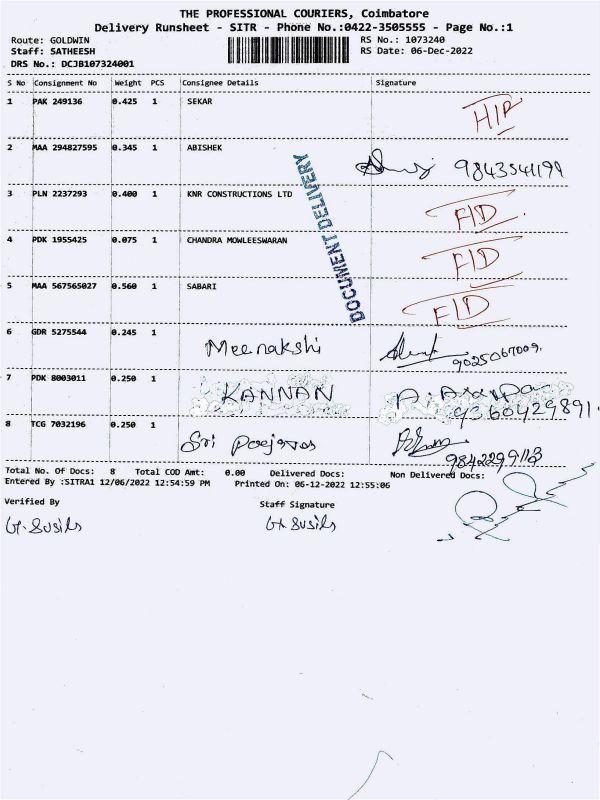 THE PROFESSIONAL COURIERS, Coimbatore
Delivery Runsheet - SITR - Phone No.:0422-3505555 - Page No.:1
Route: GOLDWIN RS No.: 1073240
Staff: SATHEESH RS Date: 06-Dec-2022
DRS No.: DCJB107324001
S No Consignment No Weight PCS Consignee Details Signature
1 PAK 249136 0.425 1 SEKAR
2 MAA 294827595 0.345 1 ABISHEK 9843541199
3 PLN 2237293 0.400 1 KNR CONSTRUCTIONS LTD F/D
4 PDK 1955425 0.075 1 CHANDRA MOWLEESWARAN F/D
5 MAA 567565027 0.560 1 SABARI F/D
DOCUMENT DELIVERY
6 GDR 5275544 0.245 1 Meenakshi 9025067009.
7 PDK 8003011 0.250 1 KANNAN 9360429891.
8 TCG 7032196 0.250 1 Sri 9842299113
Total No. Of Docs: 8 Total COD Amt: 0.00 Delivered Docs: Non Delivered Docs:
Entered By :SITRA1 12/06/2022 12:54:59 PM Printed On: 06-12-2022 12:55:06
Verified By Staff Signature